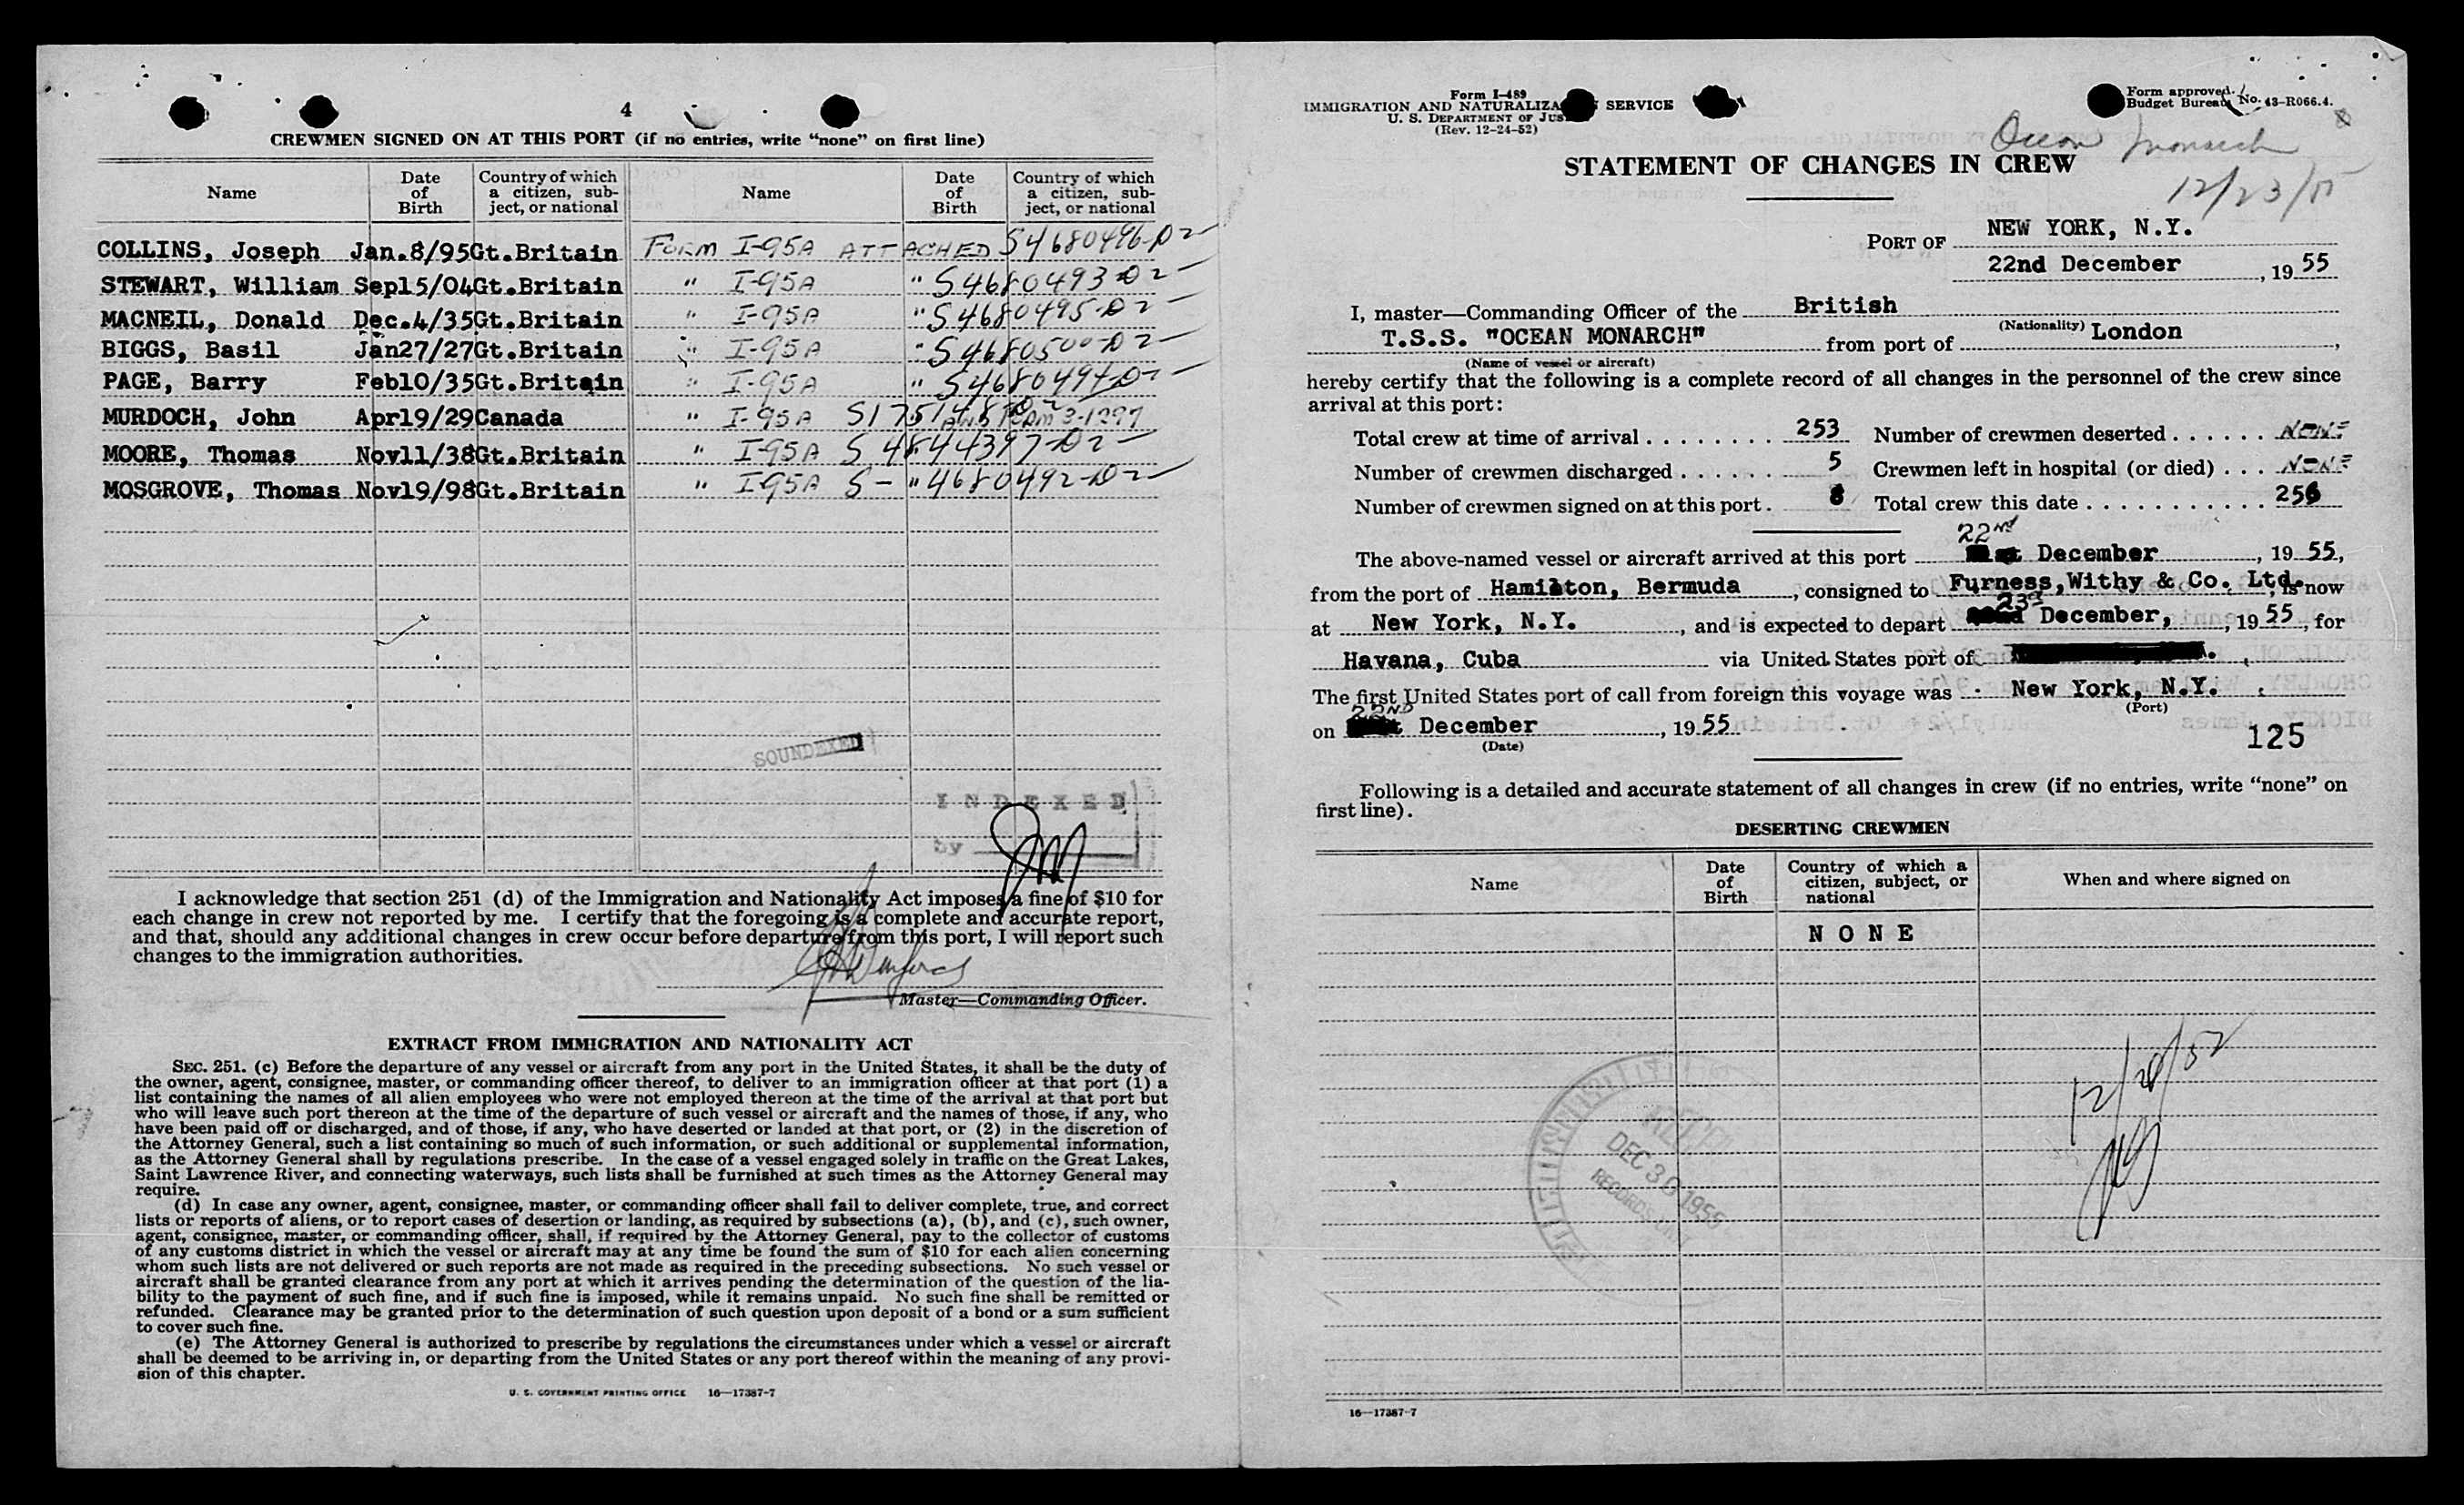 4
CREWMEN SIGNED ON AT THIS PORT (if no entries, write “none” on first line)
Name
Date of Birth
Country of which a citizen, sub-ject, or national
Name
Date of Birth
Country of which a citizen, sub-ject, or national
COLLINS, Joseph Jan.8/95 Gt.Britain FORM I-95A ATTACHED S4680496-D2-
STEWART, William Sep15/04 Gt.Britain " I-95A " S4680493-D2-
MACNEIL, Donald Dec.4/35 Gt.Britain " I-95A " S4680495-D2-
BIGGS, Basil Jan27/27 Gt.Britain " I-95A " S4680500-D2-
PAGE, Barry Feb10/35 Gt.Britain " I-95A " S4680494-D2-
MURDOCH, John Apr19/29 Canada " I-95A
MOORE, Thomas Nov11/38 Gt.Britain " I-95A S4844397-D2-
MOSGROVE, Thomas Nov19/98 Gt.Britain " I-95A S- " 4680492-D2-
SOUNDEXED
INDEXED
by
I acknowledge that section 251 (d) of the Immigration and Nationality Act imposes a fine of $10 for
each change in crew not reported by me. I certify that the foregoing is a complete and accurate report,
and that, should any additional changes in crew occur before departure from this port, I will report such
changes to the immigration authorities.
Master—Commanding Officer.
EXTRACT FROM IMMIGRATION AND NATIONALITY ACT
SEC. 251. (c) Before the departure of any vessel or aircraft from any port in the United States, it shall be the duty of
the owner, agent, consignee, master, or commanding officer thereof, to deliver to an immigration officer at that port (1) a
list containing the names of all alien employees who were not employed thereon at the time of the arrival at that port but
who will leave such port thereon at the time of the departure of such vessel or aircraft and the names of those, if any, who
have been paid off or discharged, and of those, if any, who have deserted or landed at that port, or (2) in the discretion of
the Attorney General, such a list containing so much of such information, or such additional or supplemental information,
as the Attorney General shall by regulations prescribe. In the case of a vessel engaged solely in traffic on the Great Lakes,
Saint Lawrence River, and connecting waterways, such lists shall be furnished at such times as the Attorney General may
require.
(d) In case any owner, agent, consignee, master, or commanding officer shall fail to deliver complete, true, and correct
lists or reports of aliens, or to report cases of desertion or landing, as required by subsections (a), (b), and (c), such owner,
agent, consignee, master, or commanding officer, shall, if required by the Attorney General, pay to the collector of customs
of any customs district in which the vessel or aircraft may at any time be found the sum of $10 for each alien concerning
whom such lists are not delivered or such reports are not made as required in the preceding subsections. No such vessel or
aircraft shall be granted clearance from any port at which it arrives pending the determination of the question of the lia-
bility to the payment of such fine, and if such fine is imposed, while it remains unpaid. No such fine shall be remitted or
refunded. Clearance may be granted prior to the determination of such question upon deposit of a bond or a sum sufficient
to cover such fine.
(e) The Attorney General is authorized to prescribe by regulations the circumstances under which a vessel or aircraft
shall be deemed to be arriving in, or departing from the United States or any port thereof within the meaning of any provi-
sion of this chapter.
U. S. GOVERNMENT PRINTING OFFICE 16—17387-7
Form I-489
IMMIGRATION AND NATURALIZA SERVICE
U. S. DEPARTMENT OF JUS
(Rev. 12-24-52)
Form approved.
Budget Bureau No. 43-R066.4.
Ocean Monarch
12/23/55
STATEMENT OF CHANGES IN CREW
PORT OF NEW YORK, N.Y.
22nd December, 19 55
I, master—Commanding Officer of the British
(Nationality)
T.S.S. "OCEAN MONARCH" from port of London,
(Name of vessel or aircraft)
hereby certify that the following is a complete record of all changes in the personnel of the crew since
arrival at this port:
Total crew at time of arrival 253 Number of crewmen deserted NONE
Number of crewmen discharged 5 Crewmen left in hospital (or died) NONE
Number of crewmen signed on at this port 8 Total crew this date 256
22nd
The above-named vessel or aircraft arrived at this port December, 19 55,
from the port of Hamilton, Bermuda, consigned to Furness, Withy & Co. Ltd., is now
23d
at New York, N.Y., and is expected to depart December, 19 55, for
Havana, Cuba via United States port of
The first United States port of call from foreign this voyage was New York, N.Y.
(Port)
22ND
on December, 19 55
(Date)
125
Following is a detailed and accurate statement of all changes in crew (if no entries, write “none” on
first line).
DESERTING CREWMEN
Name
Date of Birth
Country of which a citizen, subject, or national
When and where signed on
NONE
DEC 30 1955
RECORDS
16—17387-7